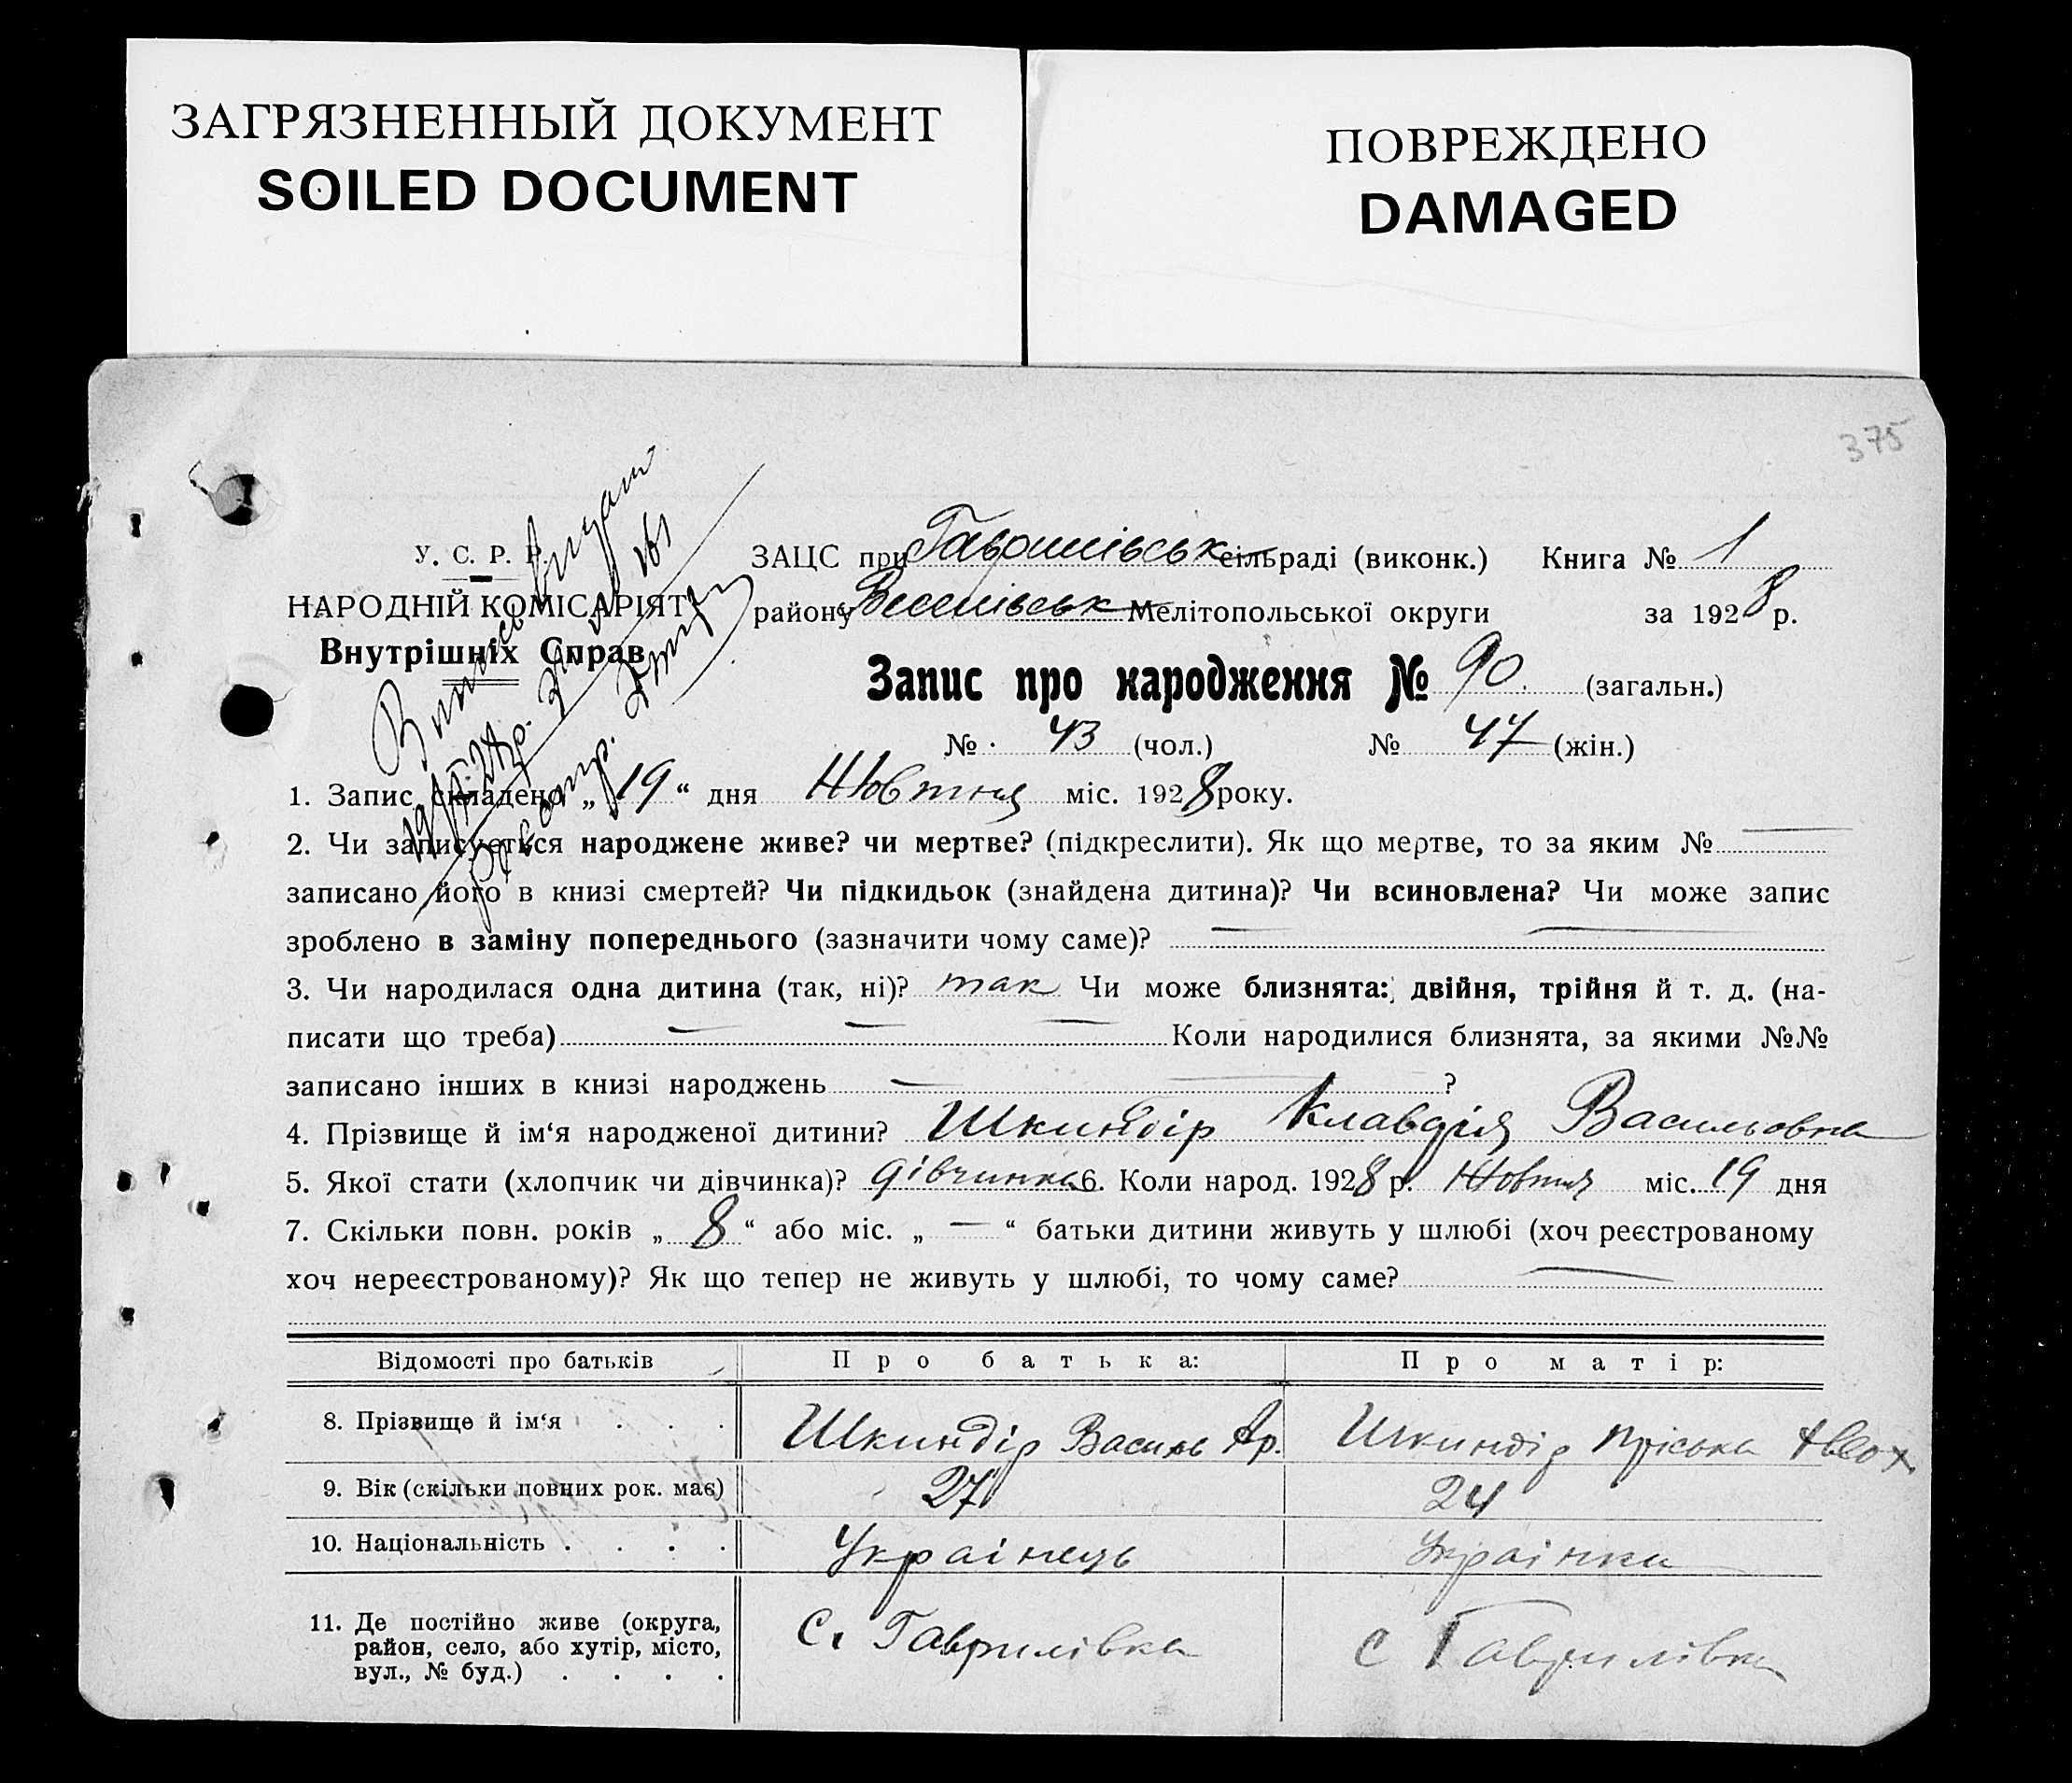 ЗАГРЯЗНЕННЫЙ ДОКУМЕНТ
SOILED DOCUMENT
ПОВРЕЖДЕНО
DAMAGED
375
У. С. Р. Р.
НАРОДНІЙ КОМІСАРІЯТ
Внутрішніх Справ
ЗАЦС при Гаврилівськ сільраді (виконк.) Книга № 1
району Веселівськ Мелітопольської округи за 1928 р.
Запис про народження № 90 (загальн.)
№ 43 (чол.) № 47 (жін.)
1. Запис складено „19“ дня Жовтня міс. 1928 року.
2. Чи записується народжене живе? чи мертве? (підкреслити). Як що мертве, то за яким № —
записано його в книзі смертей? Чи підкидьок (знайдена дитина)? Чи всиновлена? Чи може запис
зроблено в заміну попереднього (зазначити чому саме)? — —
3. Чи народилася одна дитина (так, ні)? так Чи може близнята: двійня, трійня й т. д. (на-
писати що треба) — — — Коли народилися близнята, за якими №№
записано інших в книзі народжень — — ?
4. Прізвище й ім‘я народженої дитини? Шкиндір Клавдія Васильовна
5. Якої стати (хлопчик чи дівчинка)? дівчинка 6. Коли народ. 1928 р. Жовтня міс. 19 дня
7. Скільки повн. років „8“ або міс. „—“ батьки дитини живуть у шлюбі (хоч реєстрованому
хоч нереєстрованому)? Як що тепер не живуть у шлюбі, то чому саме? —
Відомості про батьків Про батька: Про матір:
8. Прізвище й ім‘я . . . Шкиндір Василь Ар. Шкиндір Пріська
9. Вік (скільки повних рок. має) 27 24
10. Національність . . . . Українець Українка
11. Де постійно живе (округа,
район, село, або хутір, місто,
вул., № буд.) . . . . С. Гаврилівка с Гаврилівка